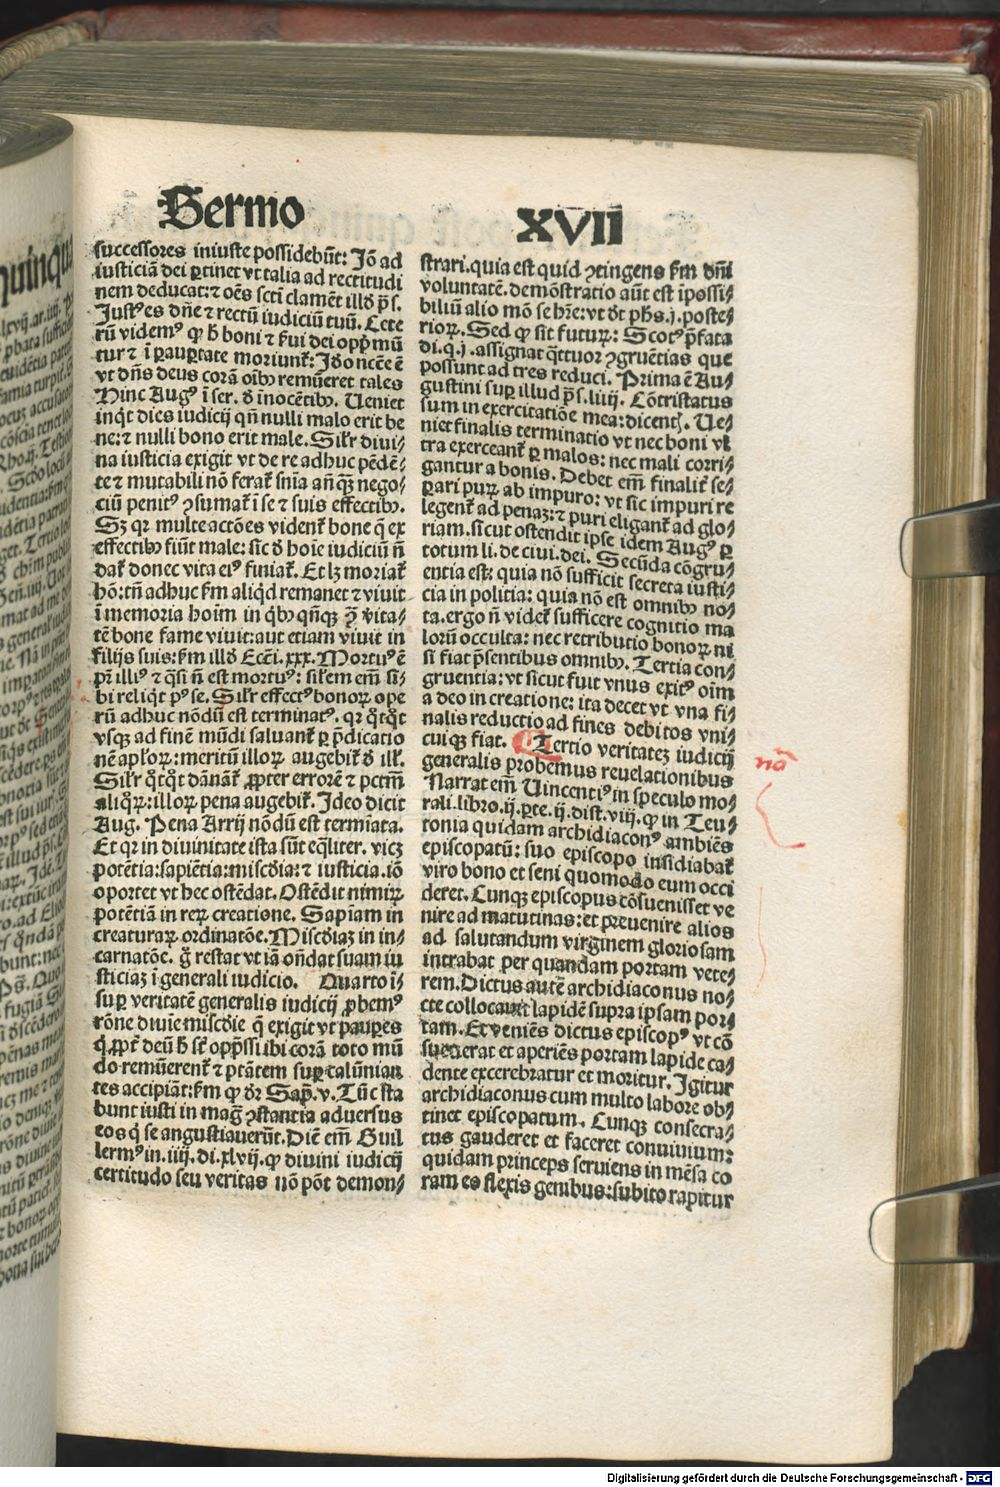 Sermo
XVII
successores iniuste possidebūt: Jō ad
iusticiā dei ꝑtinet vt talia ad rectitudi
nem deducat: ⁊ oēs scti clamēt illd̕ ps̄.
Justꝰ es dn̄e ⁊ rectū iudiciū tuū. Cete
rū videmꝰ
vt dn̄s deus corā oībꝰ remūeret tales
Hinc Augꝰ ī ser. d̕ īnocētibꝰ. Ueniet
inq̇t dies iudicij qn̄ nulli malo erit be
ne: ⁊ nulli bono erit male. Silr̄ diui⸗
na iusticia exigit vt de re adhuc pēdē⸗
te ⁊ mutabili nō feratᷣ snīa
ciū penitꝰ ꝯsumatᷣ ī se ⁊ suis effectibꝰ.
Sꝫ qꝛ multe actōes videntᷣ bone q̄ ex
effectibꝰ fiūt male: sic d̕ hoīe iudiciū n̄
datᷣ donec vita eiꝰ finiatᷣ. Et lꝫ moriatᷣ
hō: tn̄ adhuc fm aliq̇d remanet ⁊ viuit
ī memoria hoīm in
tē bone fame viuit: aut etiam viuit in
filijs suis: fm illd̕ Ecci. xxx. Mortuꝰ ē
pr̄ illiꝰ ⁊ q̄si n̄ est mortuꝰ: silem em̄ si⸗
bi reliq̇t pꝰ se. Silr̄ effectꝰ bonoꝝ ope
rū adhuc nōdū est terminatꝰ. qꝛ q̇tq̇t
vsqꝫ ad finē mūdi saluantᷣ ꝑ p̄dicatio
nē apl'oꝝ: meritū illoꝝ augebitᷣ d̕ ill'.
Silr̄ q̇tq̇t dānātᷣ ꝓpter errorē ⁊ pctm̄
aliq̇ꝝ: illoꝝ pena augebitᷣ. Ideo dicit
Aug. Pena Arrij nōdū est termīata.
Et qꝛ in diuinitate ista sūt eq̄liter. vicꝫ
potētia: sapiētia: misc̄dia: ⁊ iusticia. iō
oportet vt hec ostēdat. Ostēdit nimiꝝ
potētiā in reꝝ creatione. Sapīam in
creaturaꝝ ordinatōe. Misc̄diaꝫ in in⸗
carnatōe. g̊ restat vt iā on̄dat suam iu
sticiaꝫ ī generali iudicio. Quarto ī⸗
suꝑ veritatē generalis iudicij ꝓbemꝰ
rōne diuīe misc̄die q̄ exigit vt pauꝑes
do remūerentᷣ ⁊ ptātem suꝑ calūnian
tes accipiāt: fm qd̕ dr̄ Sap̄. v. Tūc sta
bunt iusti in maḡ ꝯstantia aduersus
eos q̇ se angustiauerūt. Dic̄ em̄ Guil
lermꝰ in. iiij. di. xlvij. ꝙ diuini iudicij
certitudo seu veritas nō pōt demon⸗
strari. quia est quid ꝯtingens fm dn̄i
voluntatē. demōstratio aūt est īpossi⸗
biliū alio mō se hr̄e: vt d̕t ph̄s. j. poste⸗
rioꝝ. Sed ꝙ sit futuꝝ: Scotꝰ p̄fata
di. q. j. assignat q̈ttuor ꝯgruētias que
possunt ad tres reduci. Prima ē Au⸗
gustini suꝑ illud ps̄. liiij. Cōtristatus
sum in exercitatiōe mea: dicentꝭ. Ue⸗
niet finalis terminatio vt nec boni vl
tra exerceantᷣ ꝑ malos: nec mali corri⸗
gantur a bonis. Debet em̄ finalit̄ se⸗
ꝑari puꝝ ab impuro: vt sic impuri re
legentᷣ ad penaꝫ: ⁊ puri eligantᷣ ad glo⸗
riam. sicut ostendit ipse idem Augꝰ ꝑ
totum li. de ciui. dei. Secūda cōgru⸗
entia est: quia nō sufficit secreta iusti⸗
cia in politia: quia nō est omnibꝰ no⸗
ta. ergo n̄ videtᷣ sufficere cognitio ma
lorū occulta: nec retributio bonoꝝ ni
si fiat p̄sentibus omnibꝰ. Tertia con⸗
gruentia: vt sicut fuit vnus exitꝰ oīm
a deo in creatione: ita decet vt vna fi⸗
nalis reductio ad fines debitos vni⸗
cuiqꝫ fiat. Tertio veritateꝫ iudicij
generalis probemus reuelationibus
Narrat em̄ Uincentiꝰ in speculo mo⸗
rali. libro. ij. ꝑte. ij. dist. viij. ꝙ in Teu⸗
tonia quidam archidiaconꝰ ambiēs
episcopatū: suo episcopo insidiabatᷣ
viro bono et seni quomodo eum occi
deret. Cunqꝫ episcopus cōsueuisset ve
nire ad matutinas: et preuenire alios
ad salutandum virginem gloriosam
intrabat per quandam portam vete⸗
rem. Dictus autē archidiaconus no⸗
cte collocauit lapidē supra ipsam por⸗
tam. Et veniēs dictus episcopꝰ vt cō
sueuerat et aperiēs portam lapide ca⸗
dente excerebratur et moritur. Igitur
archidiaconus cum multo labore ob⸗
tinet episcopatum. Cunqꝫ consecra⸗
tus gauderet et faceret conuiuium:
quidam princeps seruiens in mēsa co
ram eo flexis genibus: subito rapitur
nā
Digitalisierung gefördert durch die Deutsche Forschungsgemeinschaft - DFG